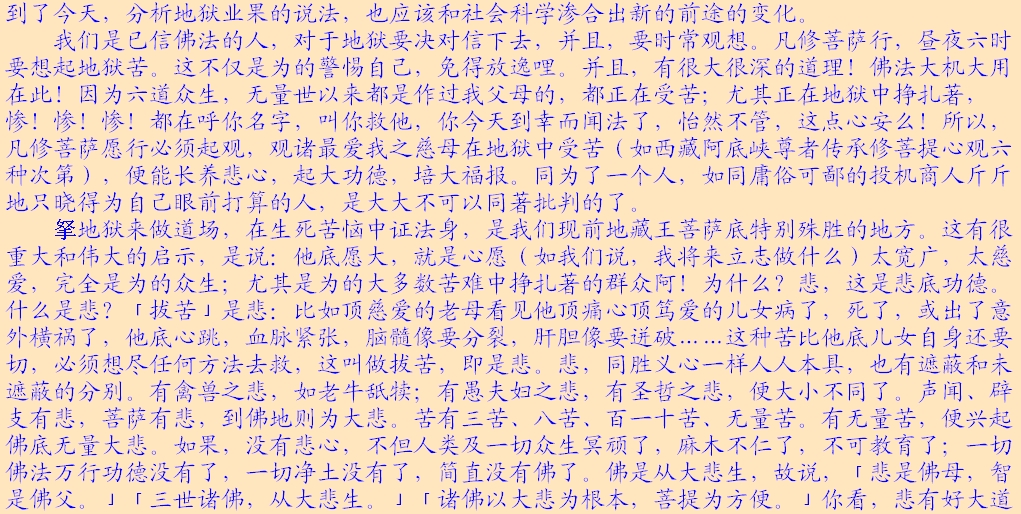 到了今天，分析地狱业果的说法，也应该和社会科学渗合出新的前途的变化。
我们是已信佛法的人，对于地狱要决对信下去，并且，要时常观想。凡修菩萨行，昼夜六时
要想起地狱苦。这不仅是为的警惕自己，免得放逸哩。并且，有很大很深的道理！佛法大机大用
在此！因为六道众生，无量世以来都是作过我父母的，都正在受苦；尤其正在地狱中挣扎著，
惨！惨！惨！都在呼你名字，叫你救他，你今天到幸而闻法了，怡然不管，这点心安么！所以，
凡修菩萨愿行必须起观，观诸最爱我之慈母在地狱中受苦（如西藏阿底峡尊者传承修菩提心观六
种次第），便能长养悲心，起大功德，培大福报。同为了一个人，如同庸俗可鄙的投机商人斤斤
地只晓得为自己眼前打算的人，是大大不可以同著批判的了。
地狱来做道场，在生死苦恼中证法身，是我们现前地藏王菩萨底特别殊胜的地方。这有很
重大和伟大的启示，是说：他底愿大，就是心愿（如我们说，我将来立志做什么）太宽广，太慈
爱，完全是为的众生；尤其是为的大多数苦难中挣扎著的群众阿！为什么？悲，这是悲底功德。
什么是悲？「拔苦」是悲：比如顶慈爱的老母看见他顶痛心顶笃爱的儿女病了，死了，或出了意
外横祸了，他底心跳，血脉紧张，脑髓像要分裂，肝胆像要迸破……这种苦比他底儿女自身还要
切，必须想尽任何方法去救，这叫做拔苦，即是悲。悲，同胜义心一样人人本具，也有遮蔽和未
遮蔽的分别。有禽兽之悲，如老牛舐犊；有愚夫妇之悲，有圣哲之悲，便大小不同了。声闻、辟
支有悲，菩萨有悲，到佛地则为大悲。苦有三苦、八苦、百一十苦、无量苦。有无量苦，便兴起
佛底无量大悲。如果，没有悲心，不但人类及一切众生冥顽了，麻木不仁了，不可教育了；一切
佛法万行功德没有了，一切净土没有了，简直没有佛了。佛是从大悲生，故说，「悲是佛母，智
是佛父。」「三世诸佛，从大悲生。」「诸佛以大悲为根本，菩提为方便。」你看，悲有好大道